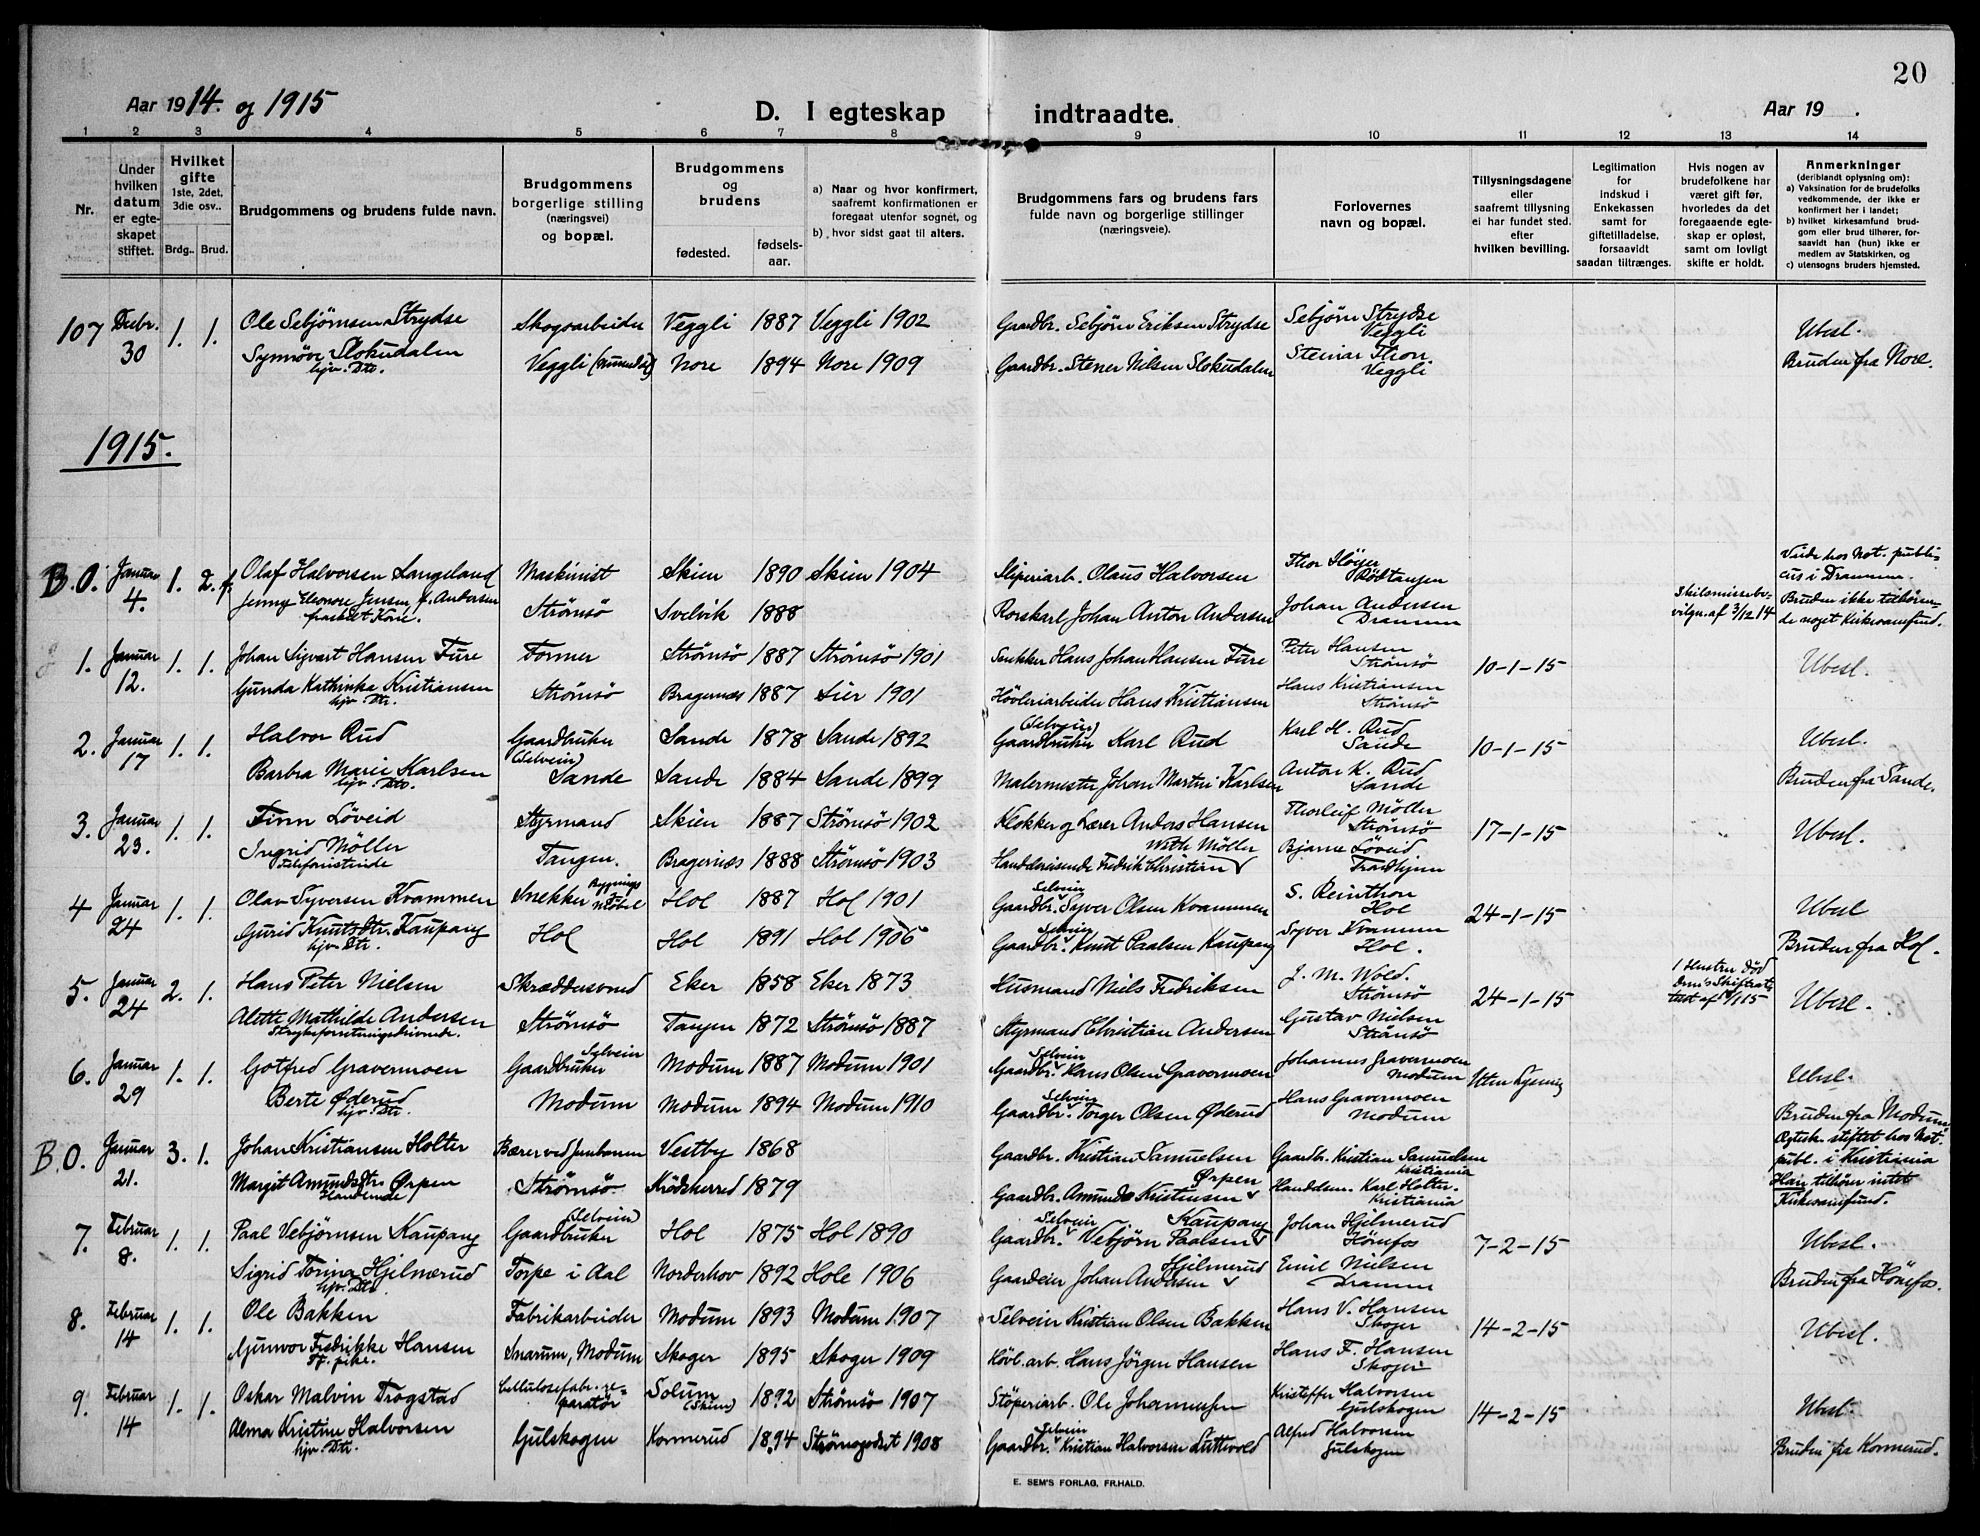 20
Aar 1914. og 1915
D. I egteskap indtraadte.
Aar 19 .
1 2 3 4 5 6 7 8 9 10 11 12 13 14
Nr.
Under hvilken datum er egteskapet stiftet.
Hvilket gifte 1ste, 2det, 3die osv..
Brdg.. Brud.
Brudgommens og brudens fulde navn.
Brudgommens borgerlige stilling (næringsvei) og bopæl.
Brudgommens og brudens
fødested. fødsels-aar.
a) Naar og hvor konfirmert, saafremt konfirmationen er foregaat utenfor sognet, og
b) hvor sidst gaat til alters.
Brudgommens fars og brudens fars fulde navn og borgerlige stillinger (næringsveie).
Forlovernes navn og bopæl.
Tillysningsdagene eller saafremt tillysning ei har fundet sted. efter hvilken bevilling.
Legitimation for Indskud i Enkekassen samt for giftetilladelse, forsaavidt saadan tiltrænges.
Hvis nogen av brudefolkene har været gift før, hvorledes da det foregaaende egteskap er opløst, samt om lovligt skifte er holdt.
Anmerkninger (deriblandt oplysning om):
a) Vaksination for de brudefolks vedkommende, der ikke er konfirmert her i landet;
b) hvilket kirkesamfund brudgom eller brud tilhører, forsaavidt han (hun) ikke er medlem av Statskirken, og
c) utensogns bruders hjemsted.
107 Decbr. 30 1. 1. Ole Sebjørnsen Strydse Skogsarbeider Veggli 1887 Veggli 1902 Gaardbr. Sebjørn Eriksen Strydse Sebjørn Strydse Veggli Ubesl.
Synnöve Slokudalen hjv. Dtr. Veggli (Numedal) Nore 1894 Nore 1909 Gaardbr. Stener Nilsen Slokudalen Steinar Thon. Veggli Bruden fra Nore.
1915.
B.O. Januar 4. 1. 2. f. Olaf Halvorsen Langeland Maskinist Skien 1890 Skien 1904 Sliperiarb. Olaus Halvorsen Thor Höyer Rödtangen Viede hos Not. publicus i Drammen.
Jenny Eleonore Jensen f. Andersen fraskilt Kone. Strömsö Svelvik 1888 Rorskarl Johan Anton Andersen Johan Andersen Drammen Skilsmissebevilgn. af 3/12 14 Bruden ikke tilhörende noget Kirkesamfund.
1. Januar 12. 1. 1. Johan Sigvart Hansen Fure Former Strömsö 1887 Strömsö 1901 Snekker Hans Johan Hansen Fure Peter Hansen Strömsö 10-1-15 Ubesl.
Gunda Kathinka Kristiansen hjv. Dtr. Strömsö Bragernæs 1887 Lier 1901 Hövleriarbeider Hans Kristiansen Hans Kristiansen Strömsö
2. Januar 17 1. 1. Halvor Rud Gaardbruker (Selveier) Sande 1878 Sande 1892 (Selveier) Gaardbruker Karl Rud Karl H. Rud Sande 10-1-15 Ubesl.
Barbra Marie Karlsen hjv. Dtr. Sande Sande 1884 Sande 1899 Malermester Johan Martin Karlsen Anton K. Rud Sande Bruden fra Sande.
3. Januar 23. 1. 1. Finn Löveid Styrmand Skien 1887 Strömsö 1902 Klokker og Lærer Anders Hansen Thorleif Möller Strömsö 17-1-15 Ubesl.
Ingrid Möller Telefonistinde Tangen. Bragernæs 1888 Strömsö 1903 Handelsreisende Fredrik Christian With Möller Bjarne Löveid Trondhjem
4 Januar 24 1. 1. Olav Syversen Kvammen Snekker Bygnings Möbel Hol 1887 Hol 1901 Gaardbr. Selveier Syver Olsen Kvammen S. Reinthon Hol 24-1-15 Ubesl
Gurid Knuts Dtr. Kaupang hjv. Dtr. Hol Hol 1891 Hol 1906 Gaardbr. Selveier Knut Paalsen Kaupang Syver Kvammen Hol. Bruden fra Hol.
5. Januar 24 2. 1. Hans Peter Nielsen Skræddersvend Eker 1858 Eker 1873 Husmand Niels Fredriksen J. M. Wold. Strömsö 24-1-15 1 Hustru död Ubesl.
Alette Mathilde Andersen Strykeforretningsdrivende. Strömsö Tangen 1872 Strömsö 1887 Styrmand Christian Andersen Gustav Nielsen Strömsö
6. Januar 29 1. 1. Gotfred Gravermoen Gaardbruker Selveier Modum 1887 Modum 1901 Gaardbr. Selveier Hans Olsen Gravermoen Johannes Gravermoen Modum Uten Lysning Ubesl.
Berte Øderud hjv. Dtr. Modum Modum 1894 Modum 1910 Gaardbr. Selveier Torger Olsen Øderud Hans Gravermoen Modum Bruden fra Modum
B.O. Januar 21. 3. 1. Johan Kristiansen Holter Bærer ved Jernbanen Vestby 1868 Gaardbr. Kristian Samuelsen Gaardbr. Kristian Samuelsen Kristiania Egtesk. stiftet hos Not. publ. i Kristiania
Margit Amundsdtr. Ørpen Handlende Strömsö. Krödsherred 1879 Gaardbr. Amund Kristensen Ørpen Handelsm. Karl Holter. Kristiania Han tilhörer intet Kirkesamfund.
7. Februar 8. 1. 1. Paal Vebjørnsen Kaupang Gaardbruker (Selveier) Hol 1875 Hol 1890 Gaardbr. Selveier Vebjørn Paalsen Kaupang Johan Hjelmerud Hönefos 7-2-15 Ubesl.
Sigrid Torina Hjelmerud hjv. Dtr. Torpe i Aal Norderhov 1892 Hole 1906 Gaardeier Johan Andersen Hjelmerud Emil Nielsen Drammen Bruden fra Hönefos.
8. Februar 14 1. 1. Ole Bakken Fabrikarbeider Modum 1893 Modum 1907 Selveier Kristian Olsen Bakken Hans V. Hansen Skoger 14-2-15 Ubesl.
Gunvor Fredrikke Hansen Tj. pike. Snarum, Modum Skoger 1895 Skoger 1909 Hövl. arb. Hans Jörgen Hansen Hans F. Hansen Skoger
9. Februar 14 1. 1. Oskar Malvin Trögstad Cellulosefabr. reparatör Solum (Skien) 1892 Strömsö 1907 Stöperiarb. Ole Johannessen Kristoffer Halvorsen Gulskogen 14-2-15 Ubesl.
Alma Kristine Halvorsen hjv. Dtr. Gulskogen Konnerud 1894 Strömsgodset 1908 Gaardbr. Selveier Kristian Halvorsen Alfred Halvorsen Gulskogen Bruden fra Konnerud.
E. SEM'S FORLAG, FR.HALD.